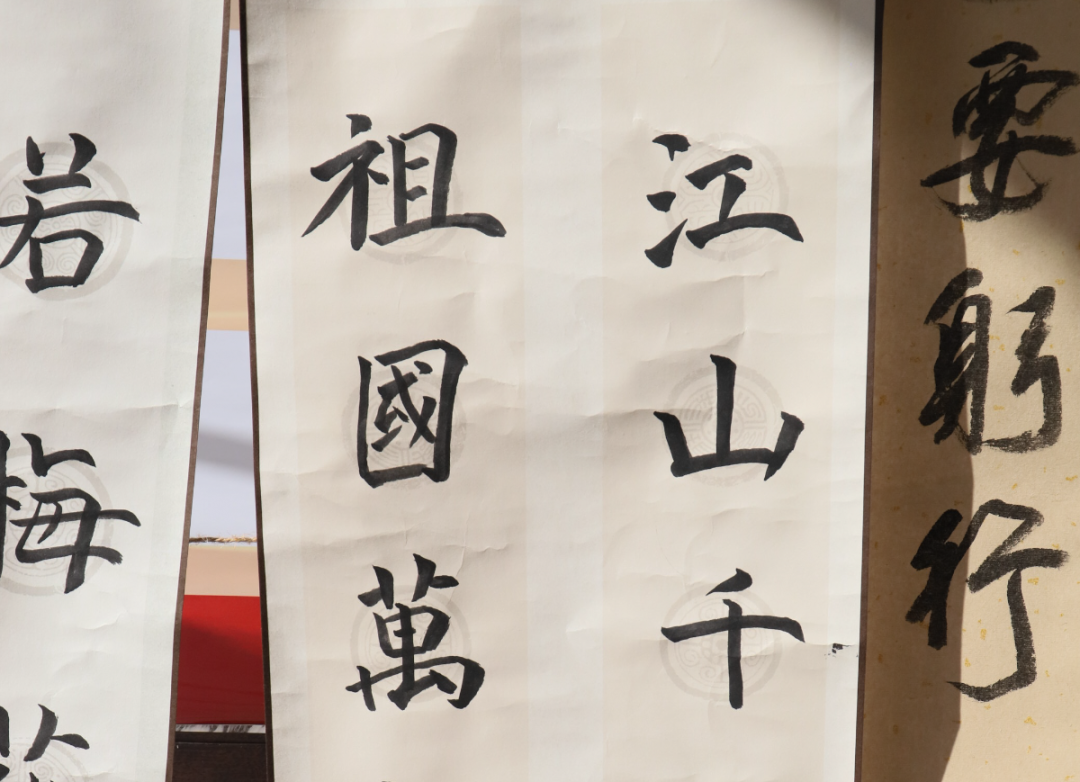 要躬行
江山千
祖國萬
若梅